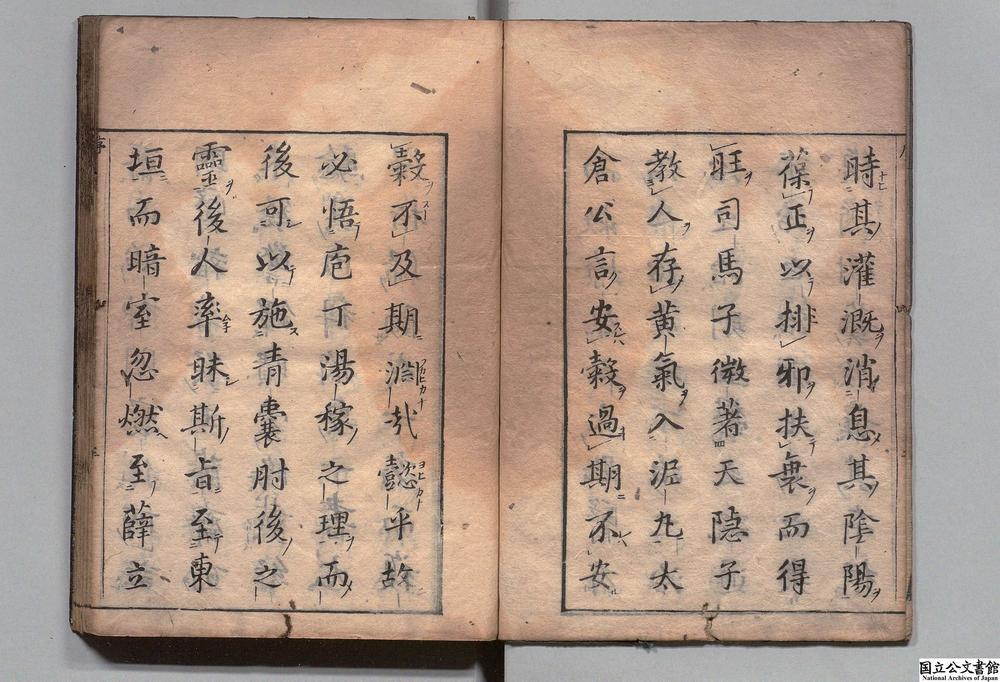 時其灌漑消息其陰陽
葆正以排邪扶衰而得
旺司馬子微著天隠子
教人存黄氣入泥丸太
倉公言安糓過期不安
糓不及期淵哉懿乎故
必悟庖丁湯稼之理而
後可以施青囊肘後之
靈後人率昧斯旨至東
垣而暗室忽燃至薛立
国立公文書館
National Archives of Japan